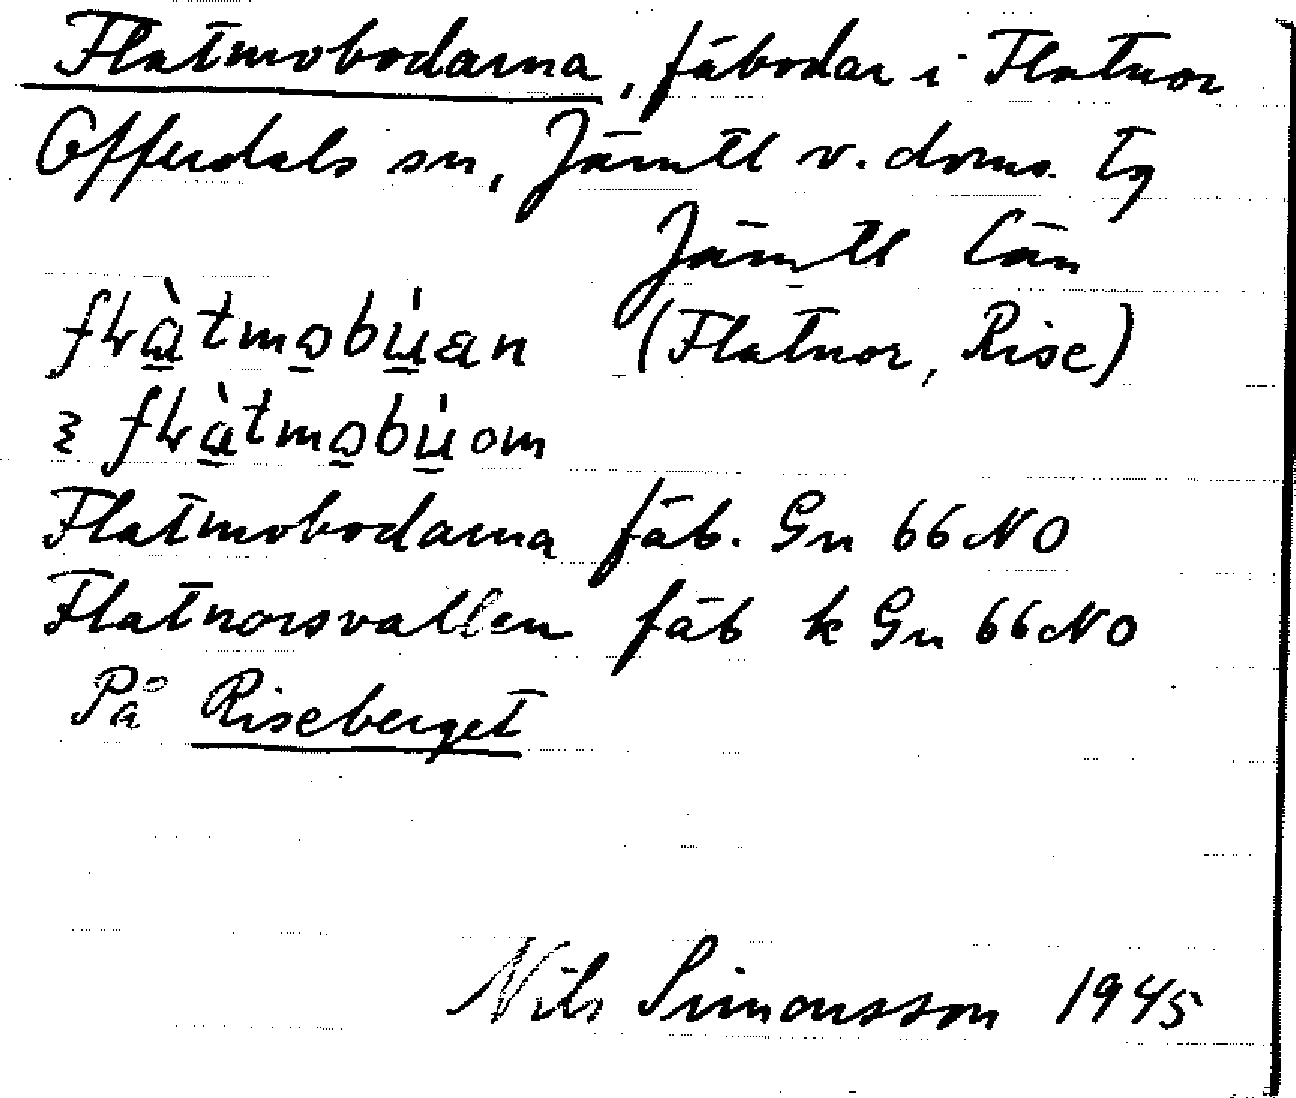 Flatmobodarna, fäbodar i Flatnor
Offerdals sn, Jämtl v. doms. tg
Jämtl Län
(Flatnor, Rise)
Flatmobodarna fäb. Gn 66 NO
Flatnorsvallen fäb k Gn 66 NO
På Riseberget
Nils Simonsson 1945